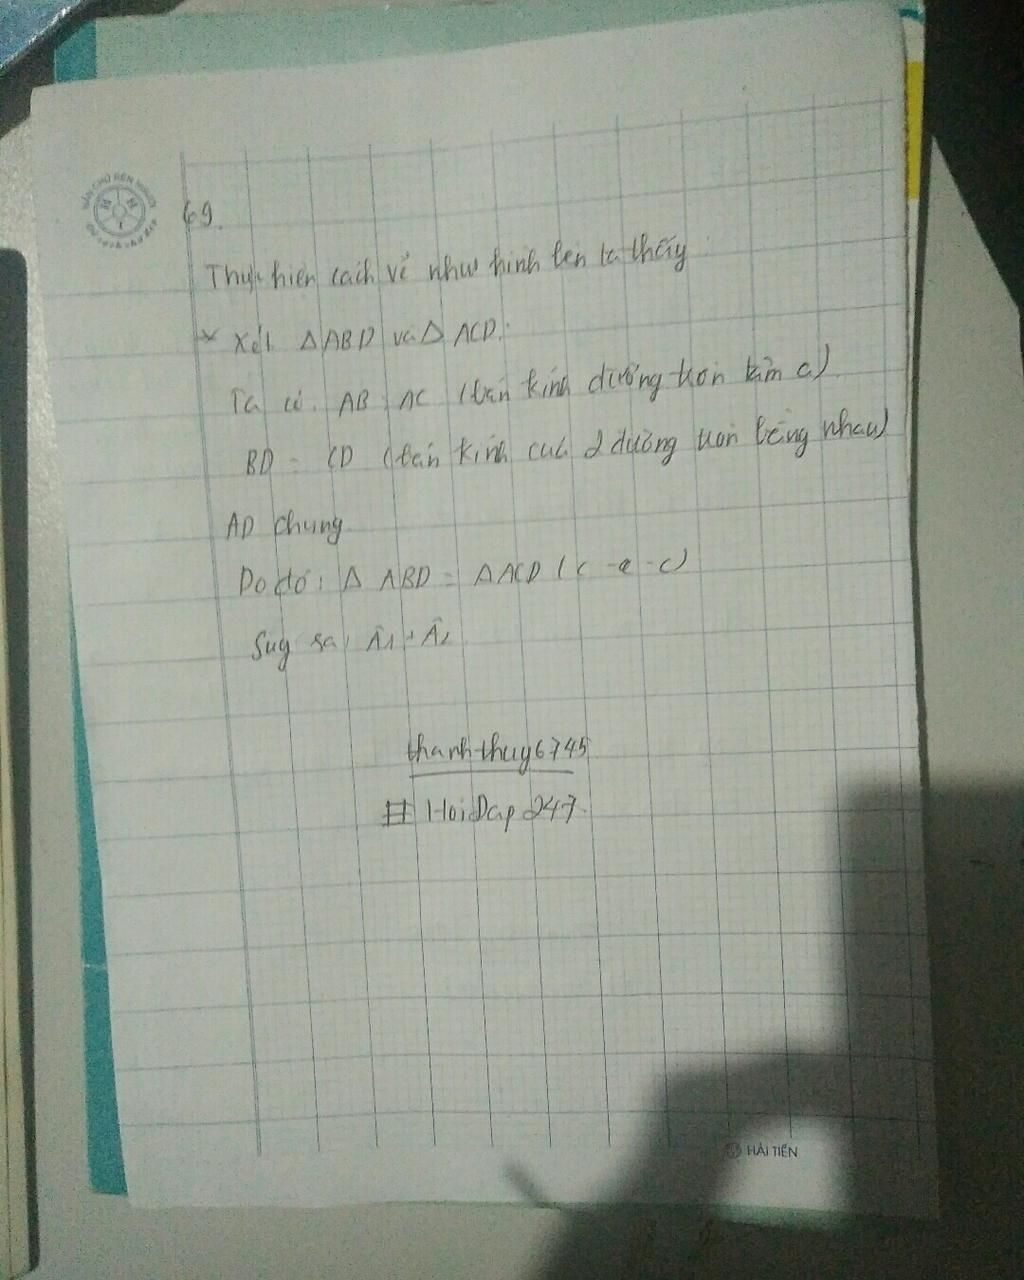 69.
Thực hiện cách vẽ như hình bên ta thấy
* Xét ΔABD và Δ ACD:
Ta có: AB = AC (bán kính đường tròn tâm a)
BD = CD (bán kính của 2 đường tròn bằng nhau)
AD chung
Do đó: Δ ABD = ΔACD (c - c - c)
Suy ra: Â1 = Â2
thanhthuy6745
# HoiDap247.
HẢI TIẾN